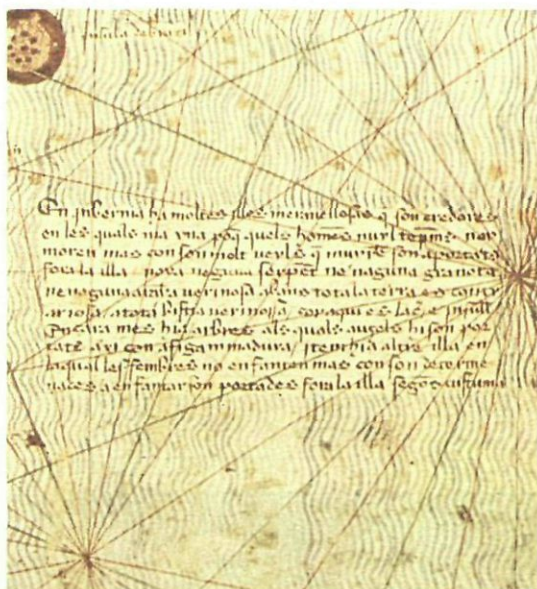 Insula de brazil
En jnbernia ha moltes illes meravellosas q son credores
en les quals nia una poq quels homens nuyl temps no y
moren mas con son molt veyls q murie son aportats
fora la illa no ya neguna serpent ne naguna granota
ne naguna aranya verinosa abans tota la terra es contr
ariosa a tota bistia verinosa cor aqui es lac e jnsull
Encara mes hi a arbres als quals auçels hi son por
tats axi con a figa madura / Jtem hi a altre illa en
la qual les fembres no enfanten mas con son determe
nades a enfantar son portades fora la illa segos custuma